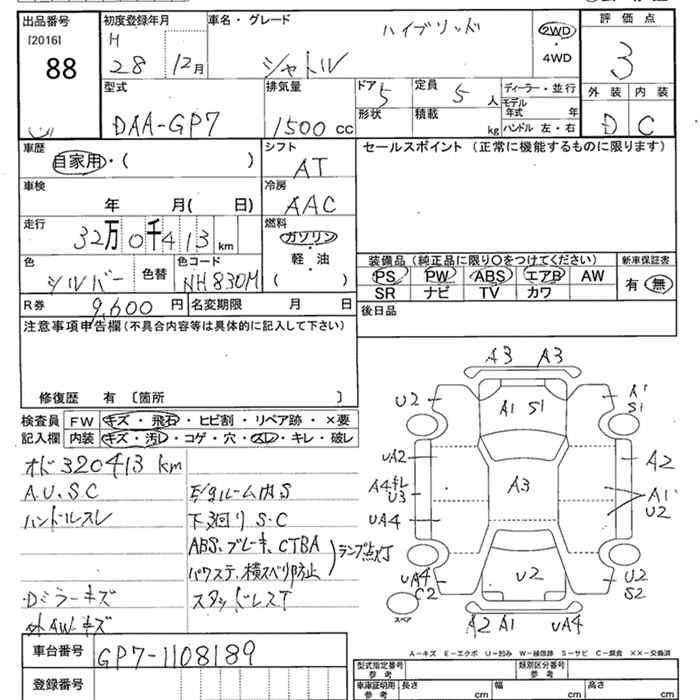 出品番号 初度登録年月 車名・グレード 評価点
[2016] H ハイブリッド 2WD
88 28 12月 シャトル ・ 3
4WD
型式 排気量 ドア 5 定員 5 人 ディーラー・並行 外装 内装
モデル年式 年
DAA-GP7 1500 cc 形状 積載 kg ハンドル 左・右 D C
車歴 シフト セールスポイント (正常に機能するものに限ります)
自家用・( ) AT
車検 冷房
年 月( 日) AAC
走行 燃料
32万0千413 km ガソリン
軽・油
色 色替 色コード ( )
シルバー NH830M
装備品(純正品に限り○をつけてください) 新車保証書
PS PW ABS エアB AW 有・無
SR ナビ TV カワ
R券 9,600円 名変期限 月 日 後日品
注意事項申告欄(不具合内容等は具体的に記入して下さい)
修復歴 有 〔箇所 〕
検査員 FW キズ・飛石・ヒビ割・リペア跡・×要
記入欄 内装 キズ・汚レ・コゲ・穴・スレ・キレ・破レ
オド320413km
A.U.S.C
ハンドルスレ 下廻りS.C
ABS、ブレーキ、CTBA
パワステ、横スベリ防止 ランプ点灯
・Dミラーキズ スタッドレスT
外AWキズ
A3 A3
U2 A1 S1 A1 S1
UA2 A2
A3
U3 A1
UA4 U2
UA4 U2 U2
C2 S2
スペア A2 A1 UA4
A-キズ E-エクボ U-凹み W-補修跡 S-サビ C-腐食 ××-交換済
車台番号 GP7-1108189
型式指定番号 参考 類別区分番号 参考
登録番号
車庫証明用 参考 長さ cm 幅 cm 高さ cm